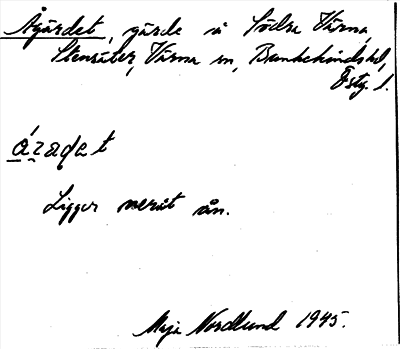 Ågärdet, gärde i Södra Värna,
Stensäter, Värna sn, Bankekinds hd,
Östg. l.
Ligger neråt ån.
Maja Nordlund 1945.